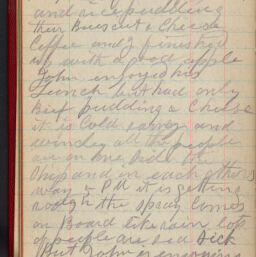 and rice pudding
then Biscuit & Cheese
Coffee and I finished
up with a good apple
John enjoyed his
Lunch but had only
Beef pudding & Cheese
it is Cold rainy and
windy all the people
are on one side the
Ship and in each others
way 2 PM it is getting
rough the spray Comes
on Board like rain lots
of people are Sea Sick
But John is enjoying